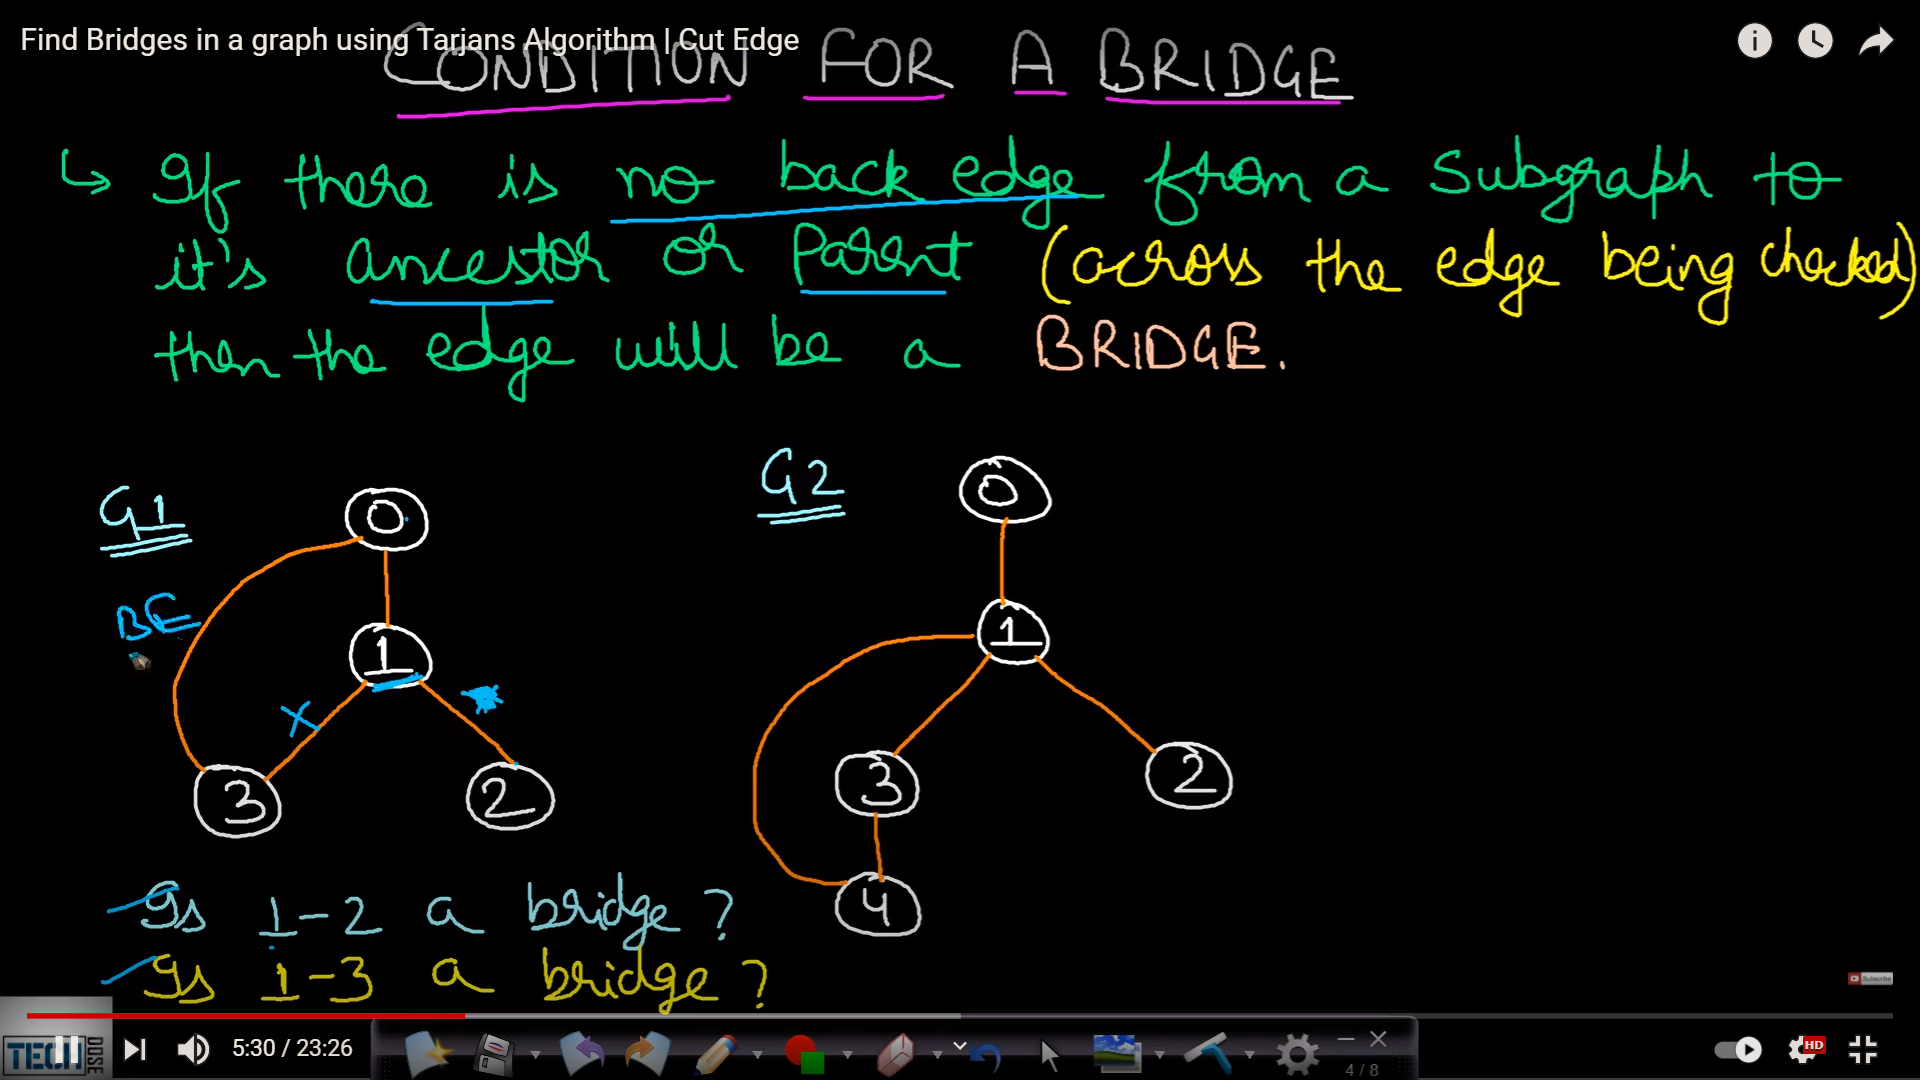 Find Bridges in a graph using Tarjans Algorithm | Cut Edge
CONDITION FOR A BRIDGE
↳ If there is no back edge from a subgraph to
it's ancestor or Parent (across the edge being checked)
then the edge will be a BRIDGE.
G1
0
BE
1
X
3
2
G2
0
1
3
2
4
Is 1-2 a bridge?
Is 1-3 a bridge?
Subscribe
TECH DOSE
5:30 / 23:26
4 / 8
HD